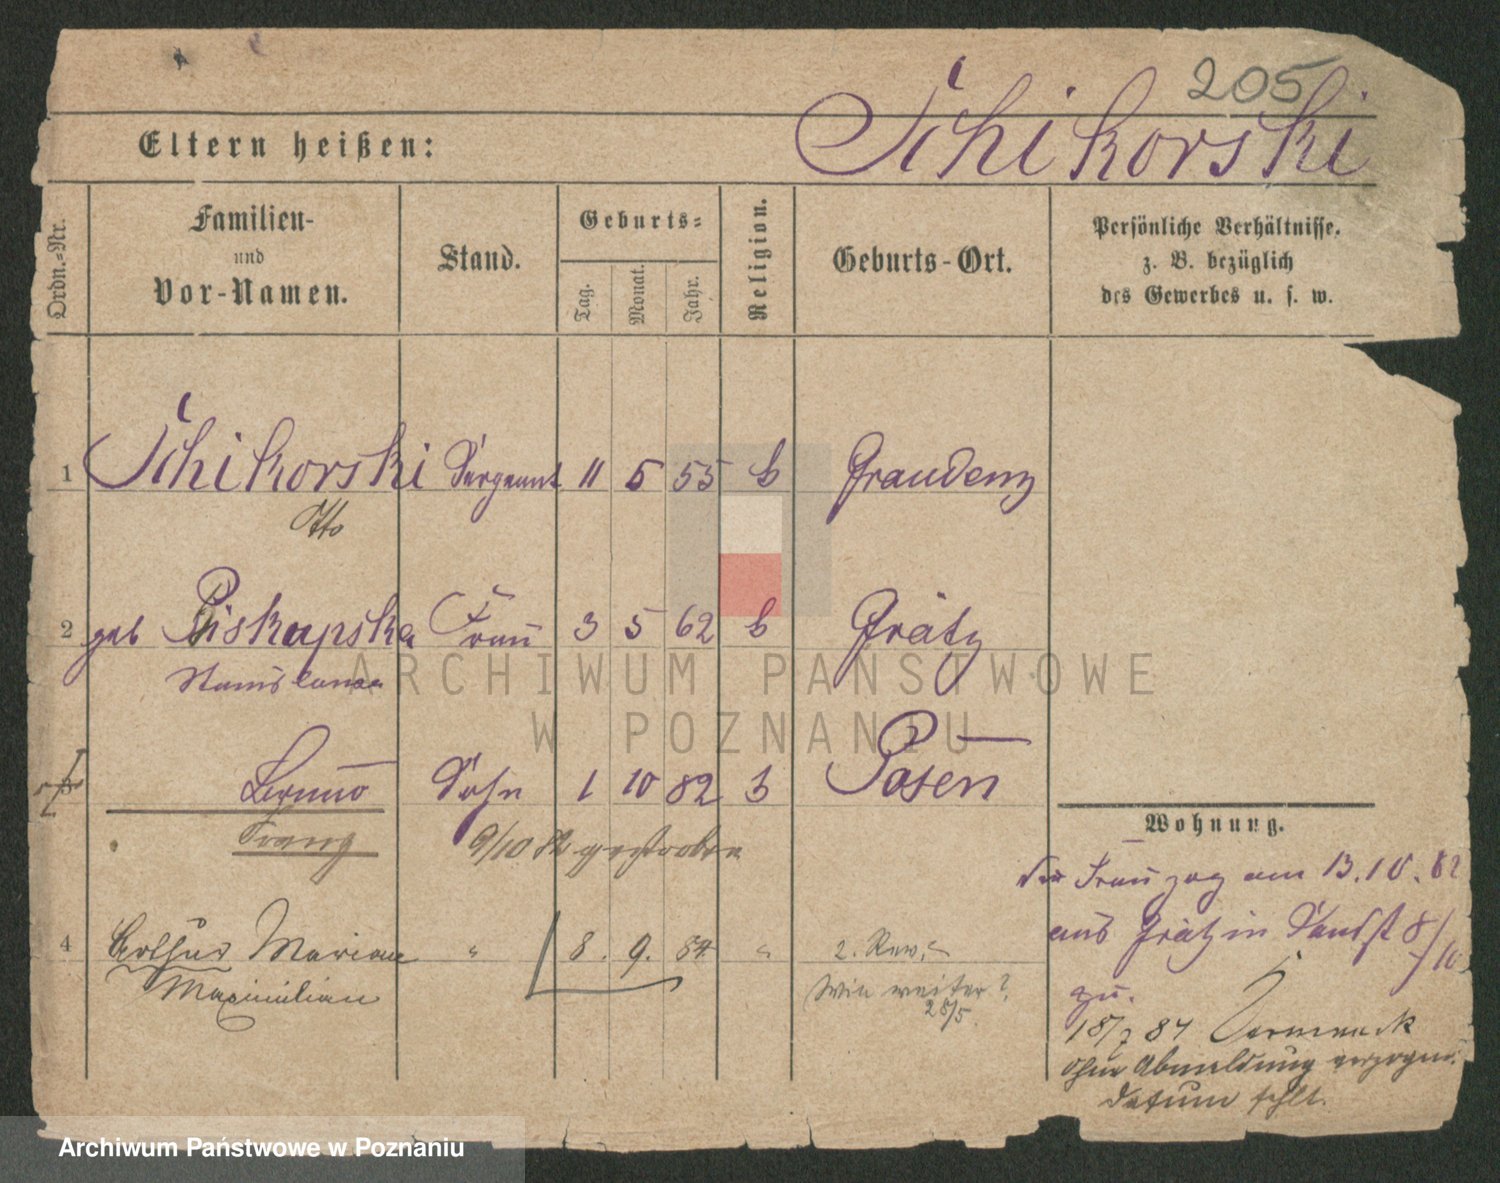 205
Schikorski
Eltern heißen:
Ordn.-Nr.
Familien-
und
Vor-Namen.
Stand.
Geburts-
Tag.
Monat.
Jahr.
Religion.
Geburts-Ort.
Persönliche Verhältnisse.
z. B. bezüglich
des Gewerbes u. s. w.
1 Schikorski Sergeant 11 5 55 k Graudenz
Otto
2 geb Biskupska Frau 3 5 62 k Grätz
Stanislawa
ARCHIWUM PAŃSTWOWE
W POZNANIU
3 Bruno Sohn 1 10 82 k Posen
Franz 9/10 82 gestorben
Wohnung.
die Frau zog am 13.10.82
aus Grätz in Sandst 8/10
zu.
4 Arthur Marian " 8. 9. 84 " 2. Rev.
Maximilian
Wie weiter?
28/5
18/7 84
ohne Abmeldung verzogen.
datum fehlt.
Archiwum Państwowe w Poznaniu